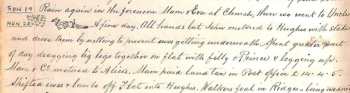 SUN 19 Rain again in the forenoon Mam & Em at Church, then we went to Uncles
MON 20 A fine day. All hands but John motored to Hughes with slats
and drove them by netting to prevent ewes getting underneath. Spent greater part
of day dragging big logs together on flat with filly & Prince & logging up.
Mam & Co. motored to Alice's. Mam paid Land tax in Post office £ 14-4-5.
Shifted ewes & lambs off Flat into Hughes. Walkers feed in Ridge